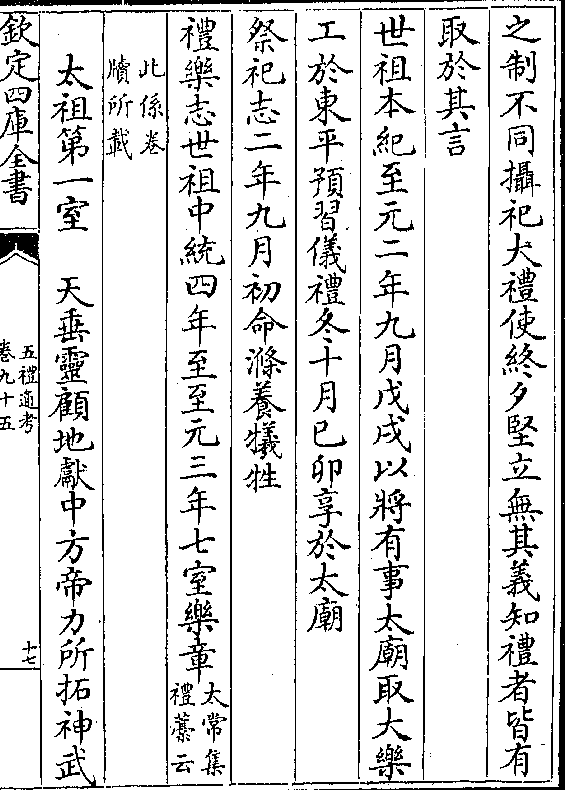 之制不同攝祀大禮使終夕堅立無其義知禮者皆有
取於其言
世祖本紀至元二年九月戊戌以將有事太廟取大樂
工於東平預習儀禮冬十月己卯享於太廟
祭祀志二年九月初命滌養犧牲
禮樂志世祖中統四年至至元三年七室樂章太常集禮藁云
此係卷牘所載
太祖第一室　天垂靈顧地獻中方帝力所拓神武
欽定四庫全書
五禮通考
卷九十五
十七